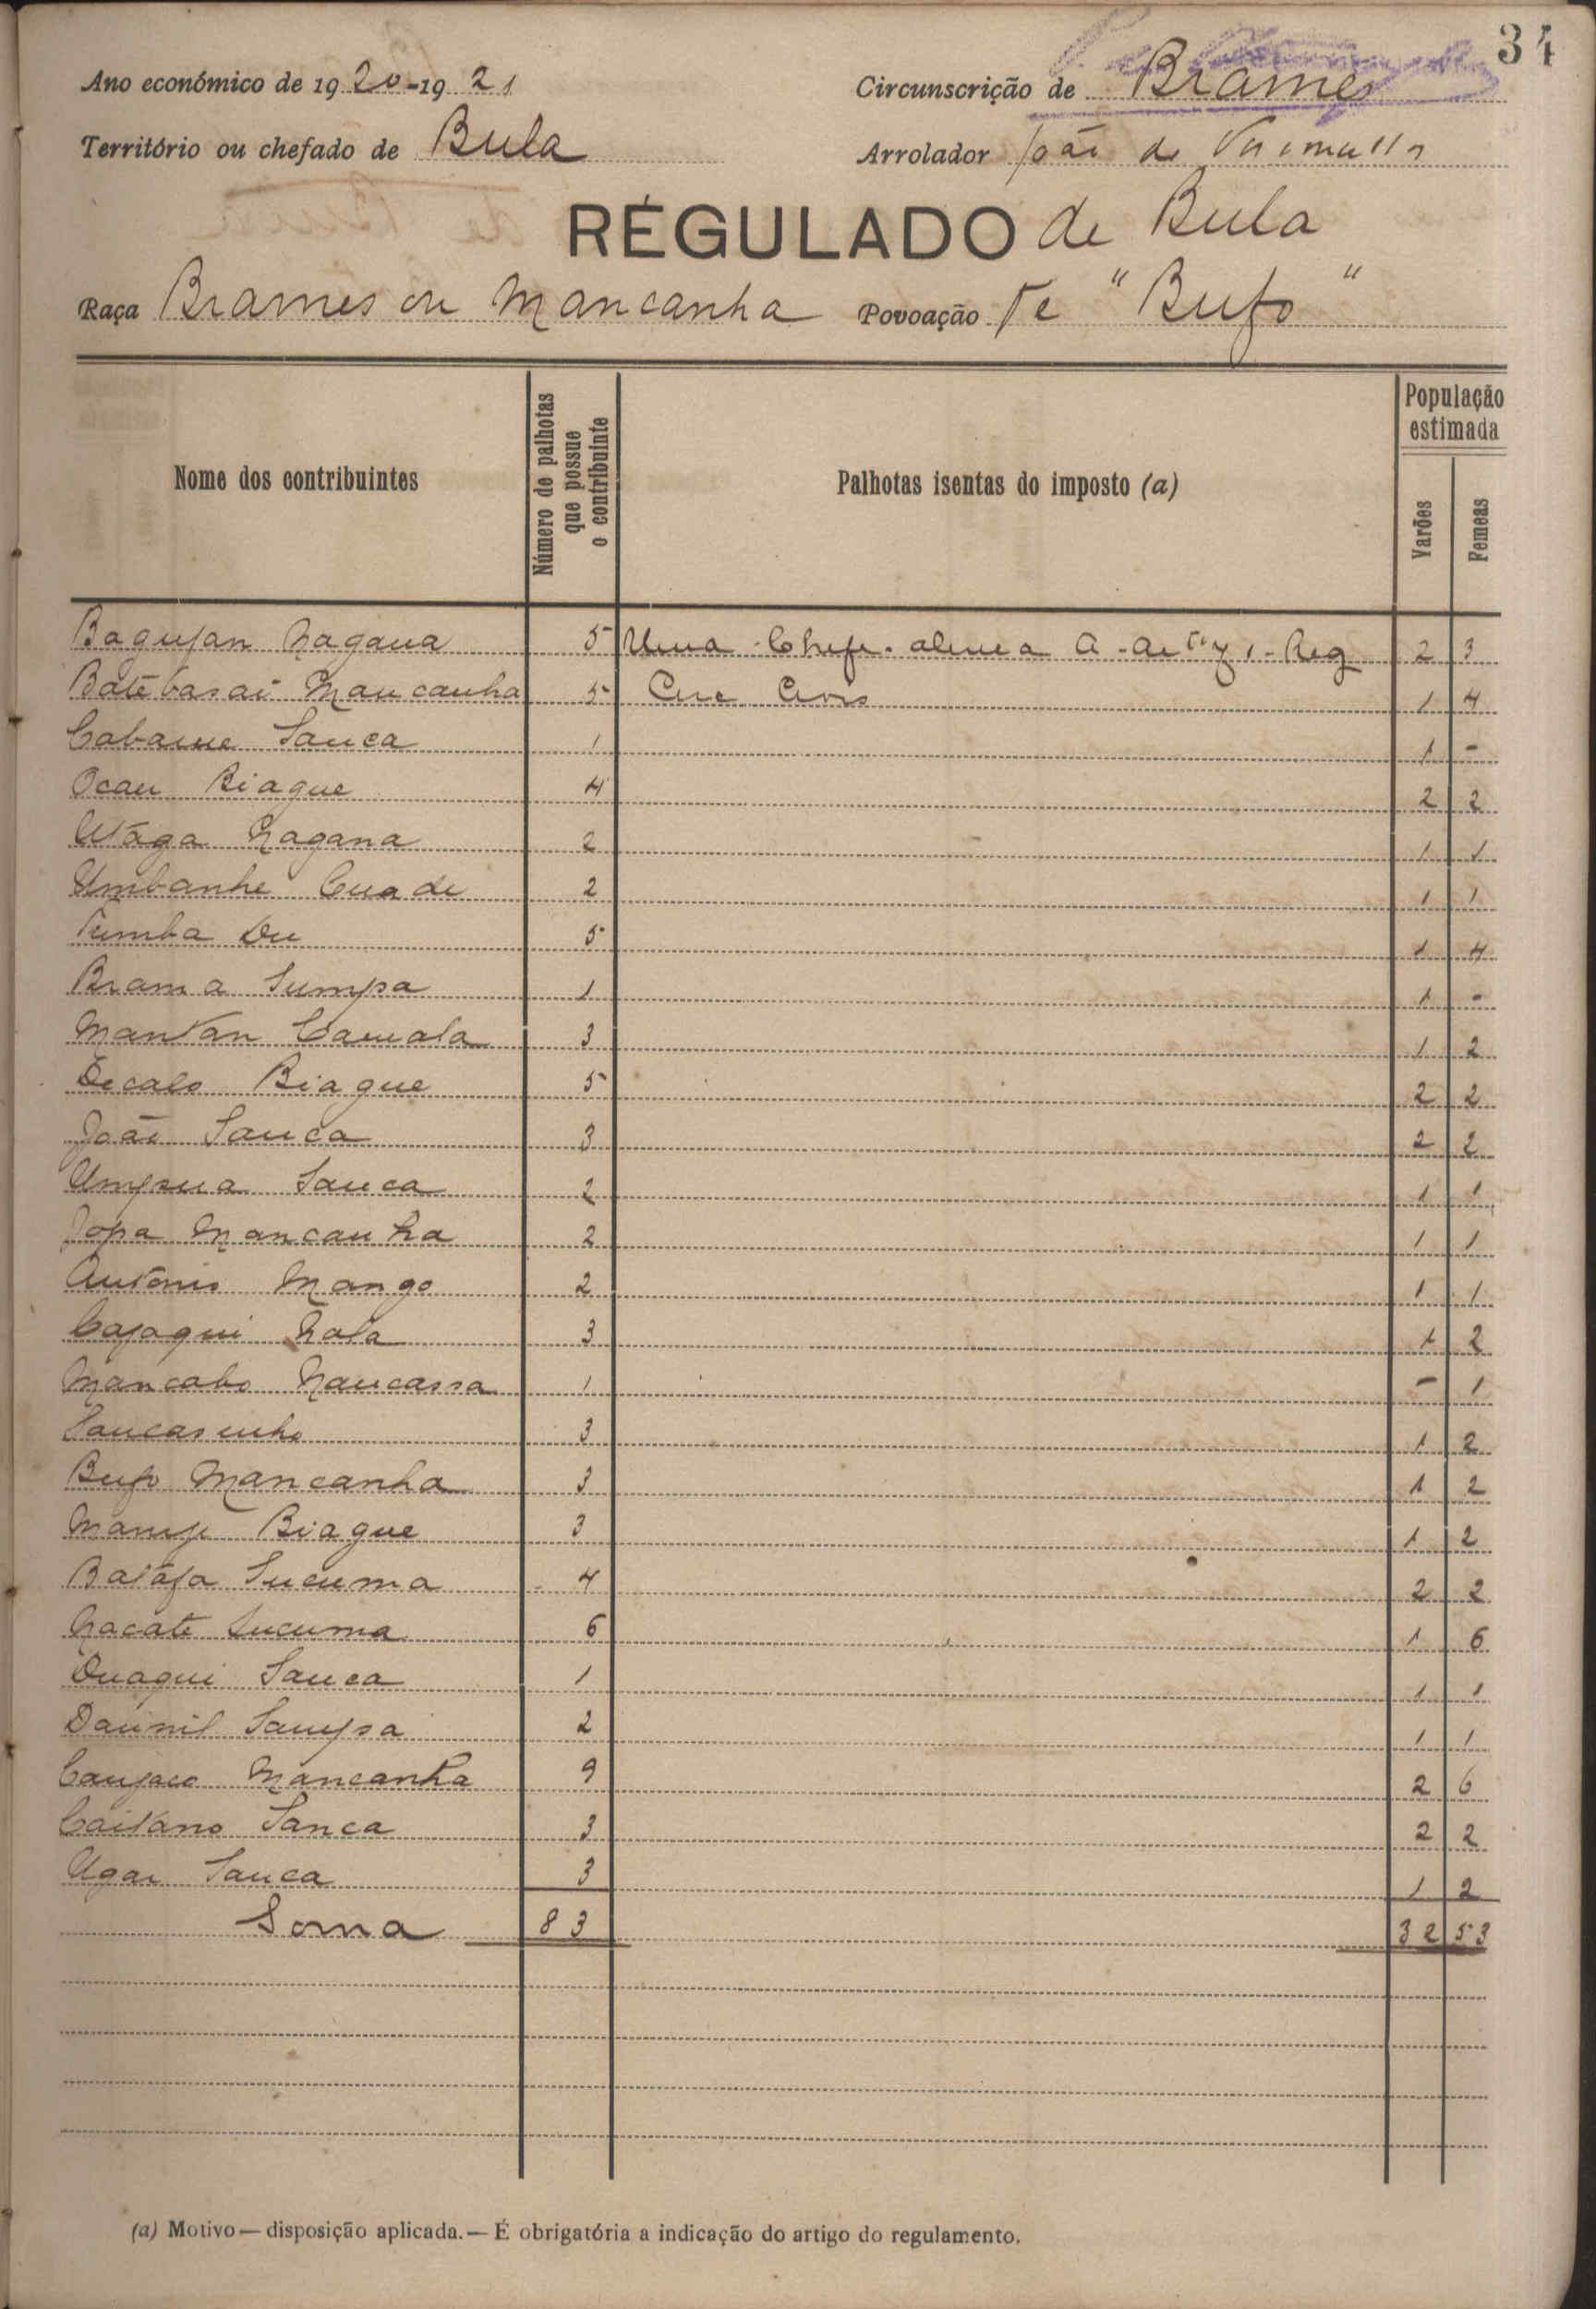 34
Ano económico de 1920-1921
Circunscrição de Brames
Território ou chefado de Bula
Arrolador João de
RÉGULADO de Bula
Raça Brames ou Mancanha Povoação de "Bufo"
Nome dos contribuintes
Número de palhotas que possue o contribuinte
Palhotas isentas do imposto (a)
População estimada
Varões
Femeas
Nagana 5 Uma Chefe alinea A - Reg 2 3
Mancanha 5 1 4
Sanca 1 1 -
Ocau Biague 4 2 2
Nagana 2 1 1
Umbanhe Cuade 2 1 1
Du 5 1 4
Brama Sumpa 1 1 -
Mantan Camala 3 1 2
Decalo Biague 5 2 2
João Sanca 3 2 2
Umpsua Sanca 2 1 1
Jopa Mancanha 2 1 1
António Mango 2 1 1
3 1 2
Mancabo Nancassa 1 - 1
3 1 2
Bufo Mancanha 3 1 2
Biague 3 1 2
Sucuma 4 2 2
Nacate Sucuma 6 1 6
Quaqui Sanca 1 1 1
2 1 1
Mancanha 9 2 6
Caitano Sanca 3 2 2
Ugar Sanca 3 1 2
Soma 83 32 53
(a) Motivo — disposição aplicada. — É obrigatória a indicação do artigo do regulamento.